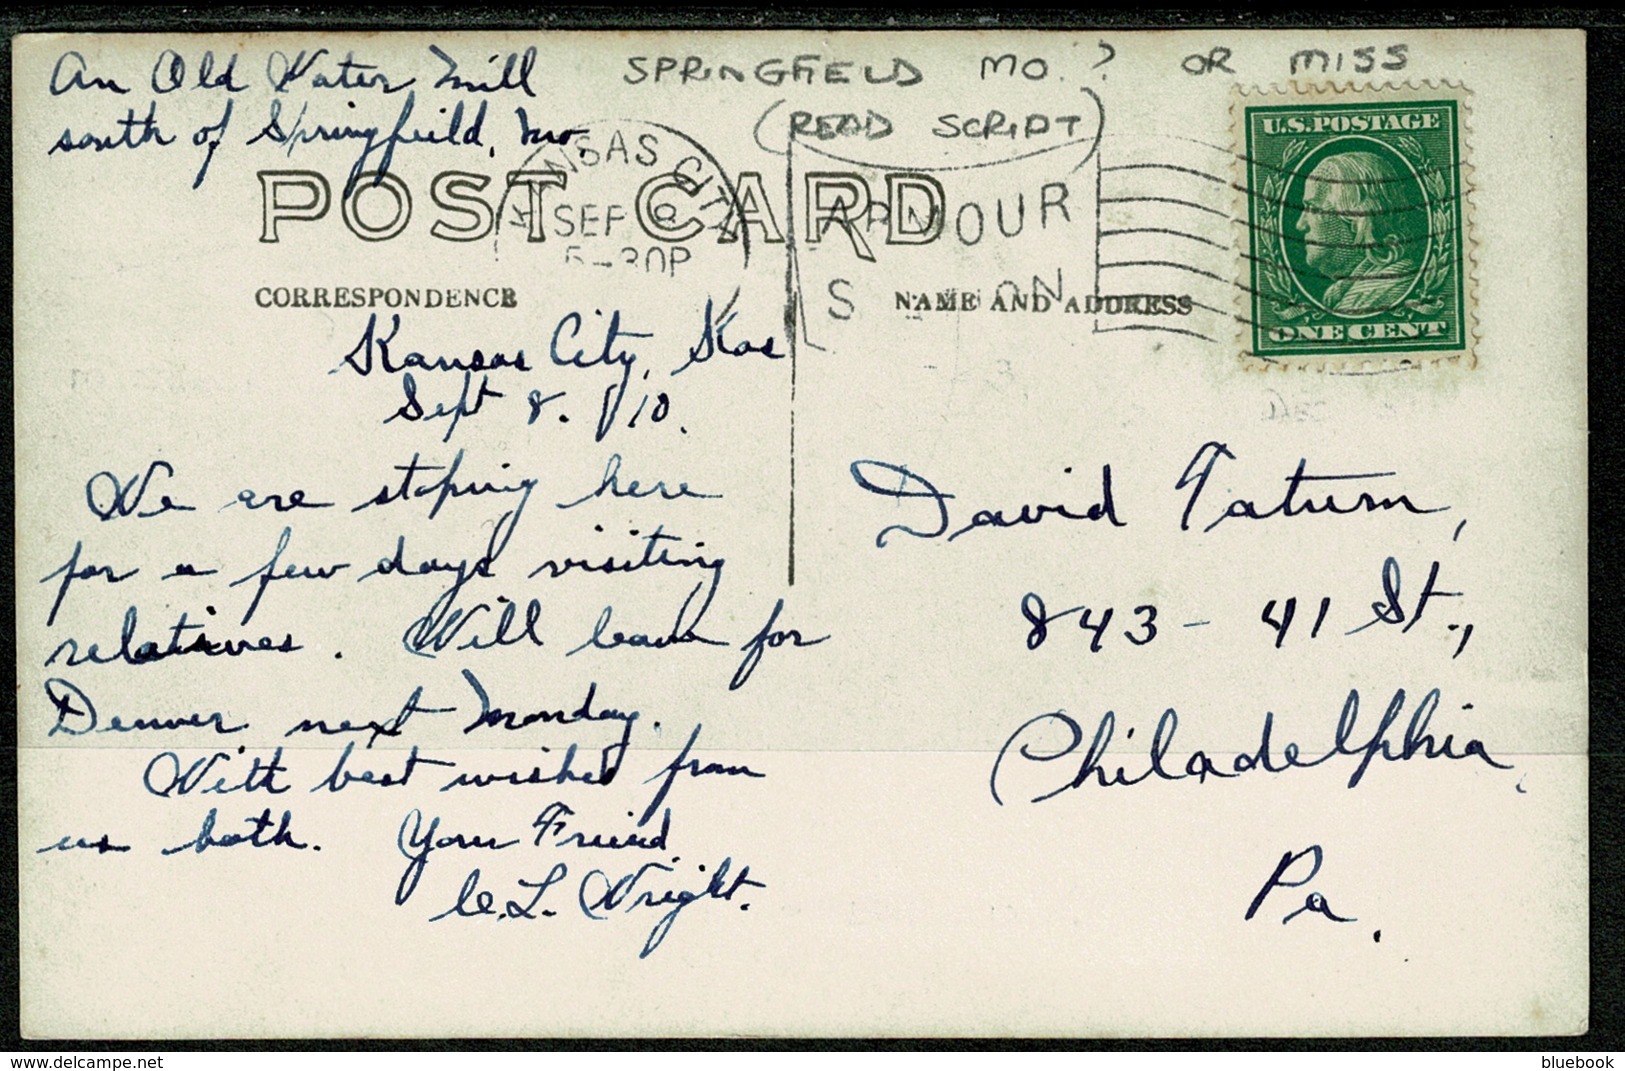 An Old Water Mill
south of Springfield, Mo.
SPRINGFIELD MO.? OR MISS
(READ SCRIPT)
KANSAS CITY
SEP 8
5-30P
ARMOUR
S
ON
U.S. POSTAGE
ONE CENT
POST CARD
CORRESPONDENCE
NAME AND ADDRESS
Kansas City, Kas
Sept 8. 1910.
We are stoping here
for a few days visiting
relatives. Will leave for
Denver next Monday.
With best wishes from
us both. Your Friend
C.L. Wright.
David Tatum,
843 - 41 St.,
Philadelphia,
Pa.
delcampe.net
bluebook